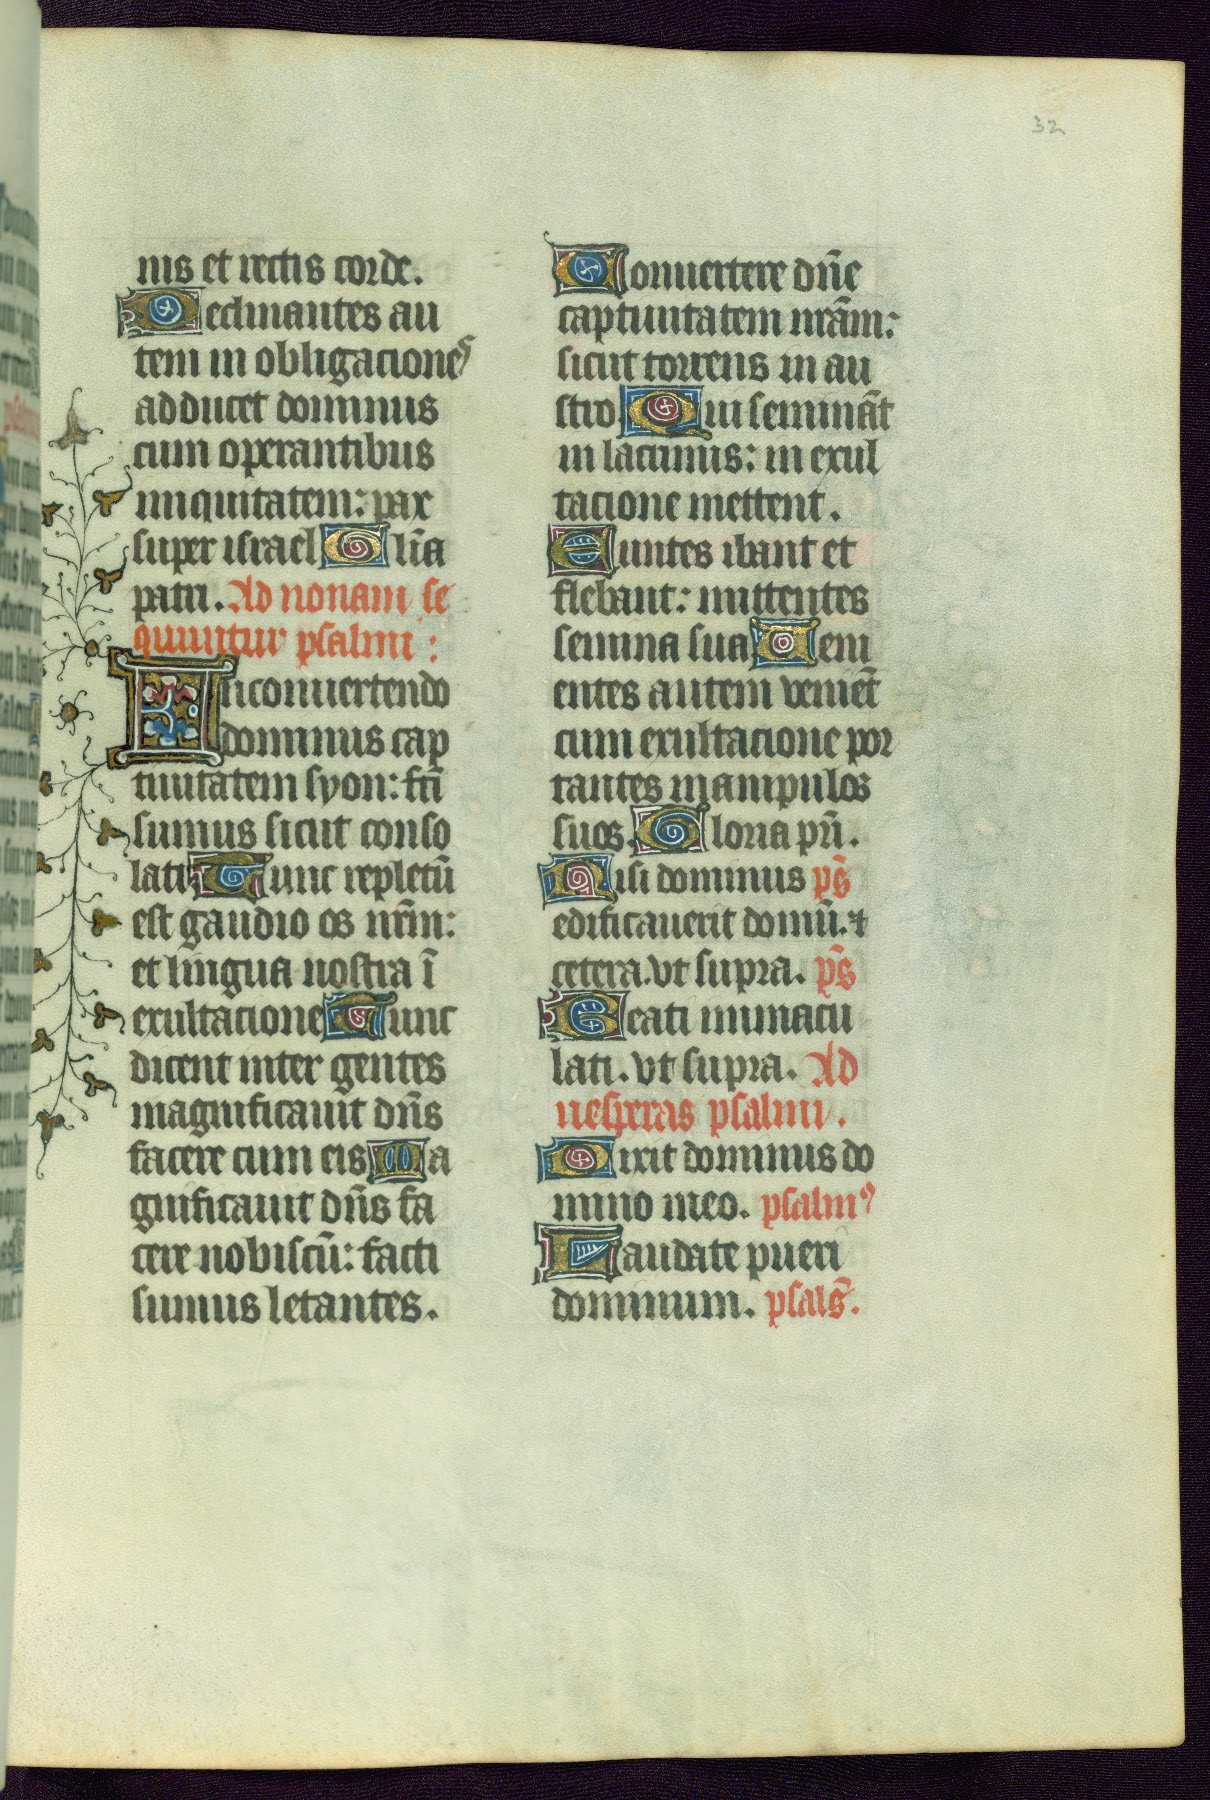 32
nis et rectis corde.
Declinantes au
tem in obligaciones
adducet dominus
cum operantibus
iniquitatem: pax
super israel Gl̄ia
patri. Ad nonam se
quuntur psalmi:
Inconuertendo
dominus cap
tiuitatem syon: fc̄ti
sumus sicut conso
lati Tunc repletū
est gaudio os nr̄m:
et lingua nostra ī
exultacione Tunc
dicent inter gentes
magnificauit dn̄s
facere cum eis Ma
gnificauit dn̄s fa
cere nobiscū: facti
sumus letantes.
Conuertere dn̄e
captiuitatem nrām:
sicut torrens in au
stro. Qui semināt
in lacrimis: in exul
tacione mettent.
Euntes ibant et
flebant: mittentes
semina sua Ueni
entes autem veniēt
cum exultacione por
tantes manipulos
suos. Gloria pr̄i.
Nisi dominus ps̄
edificauerit domū. ⁊
cetera. vt supra. ps̄
Beati immacu
lati. vt supra. Ad
uesperas psalmi.
Dixit dominus do
mino meo. psalmꝰ
Laudate pueri
dominum. psals̄.